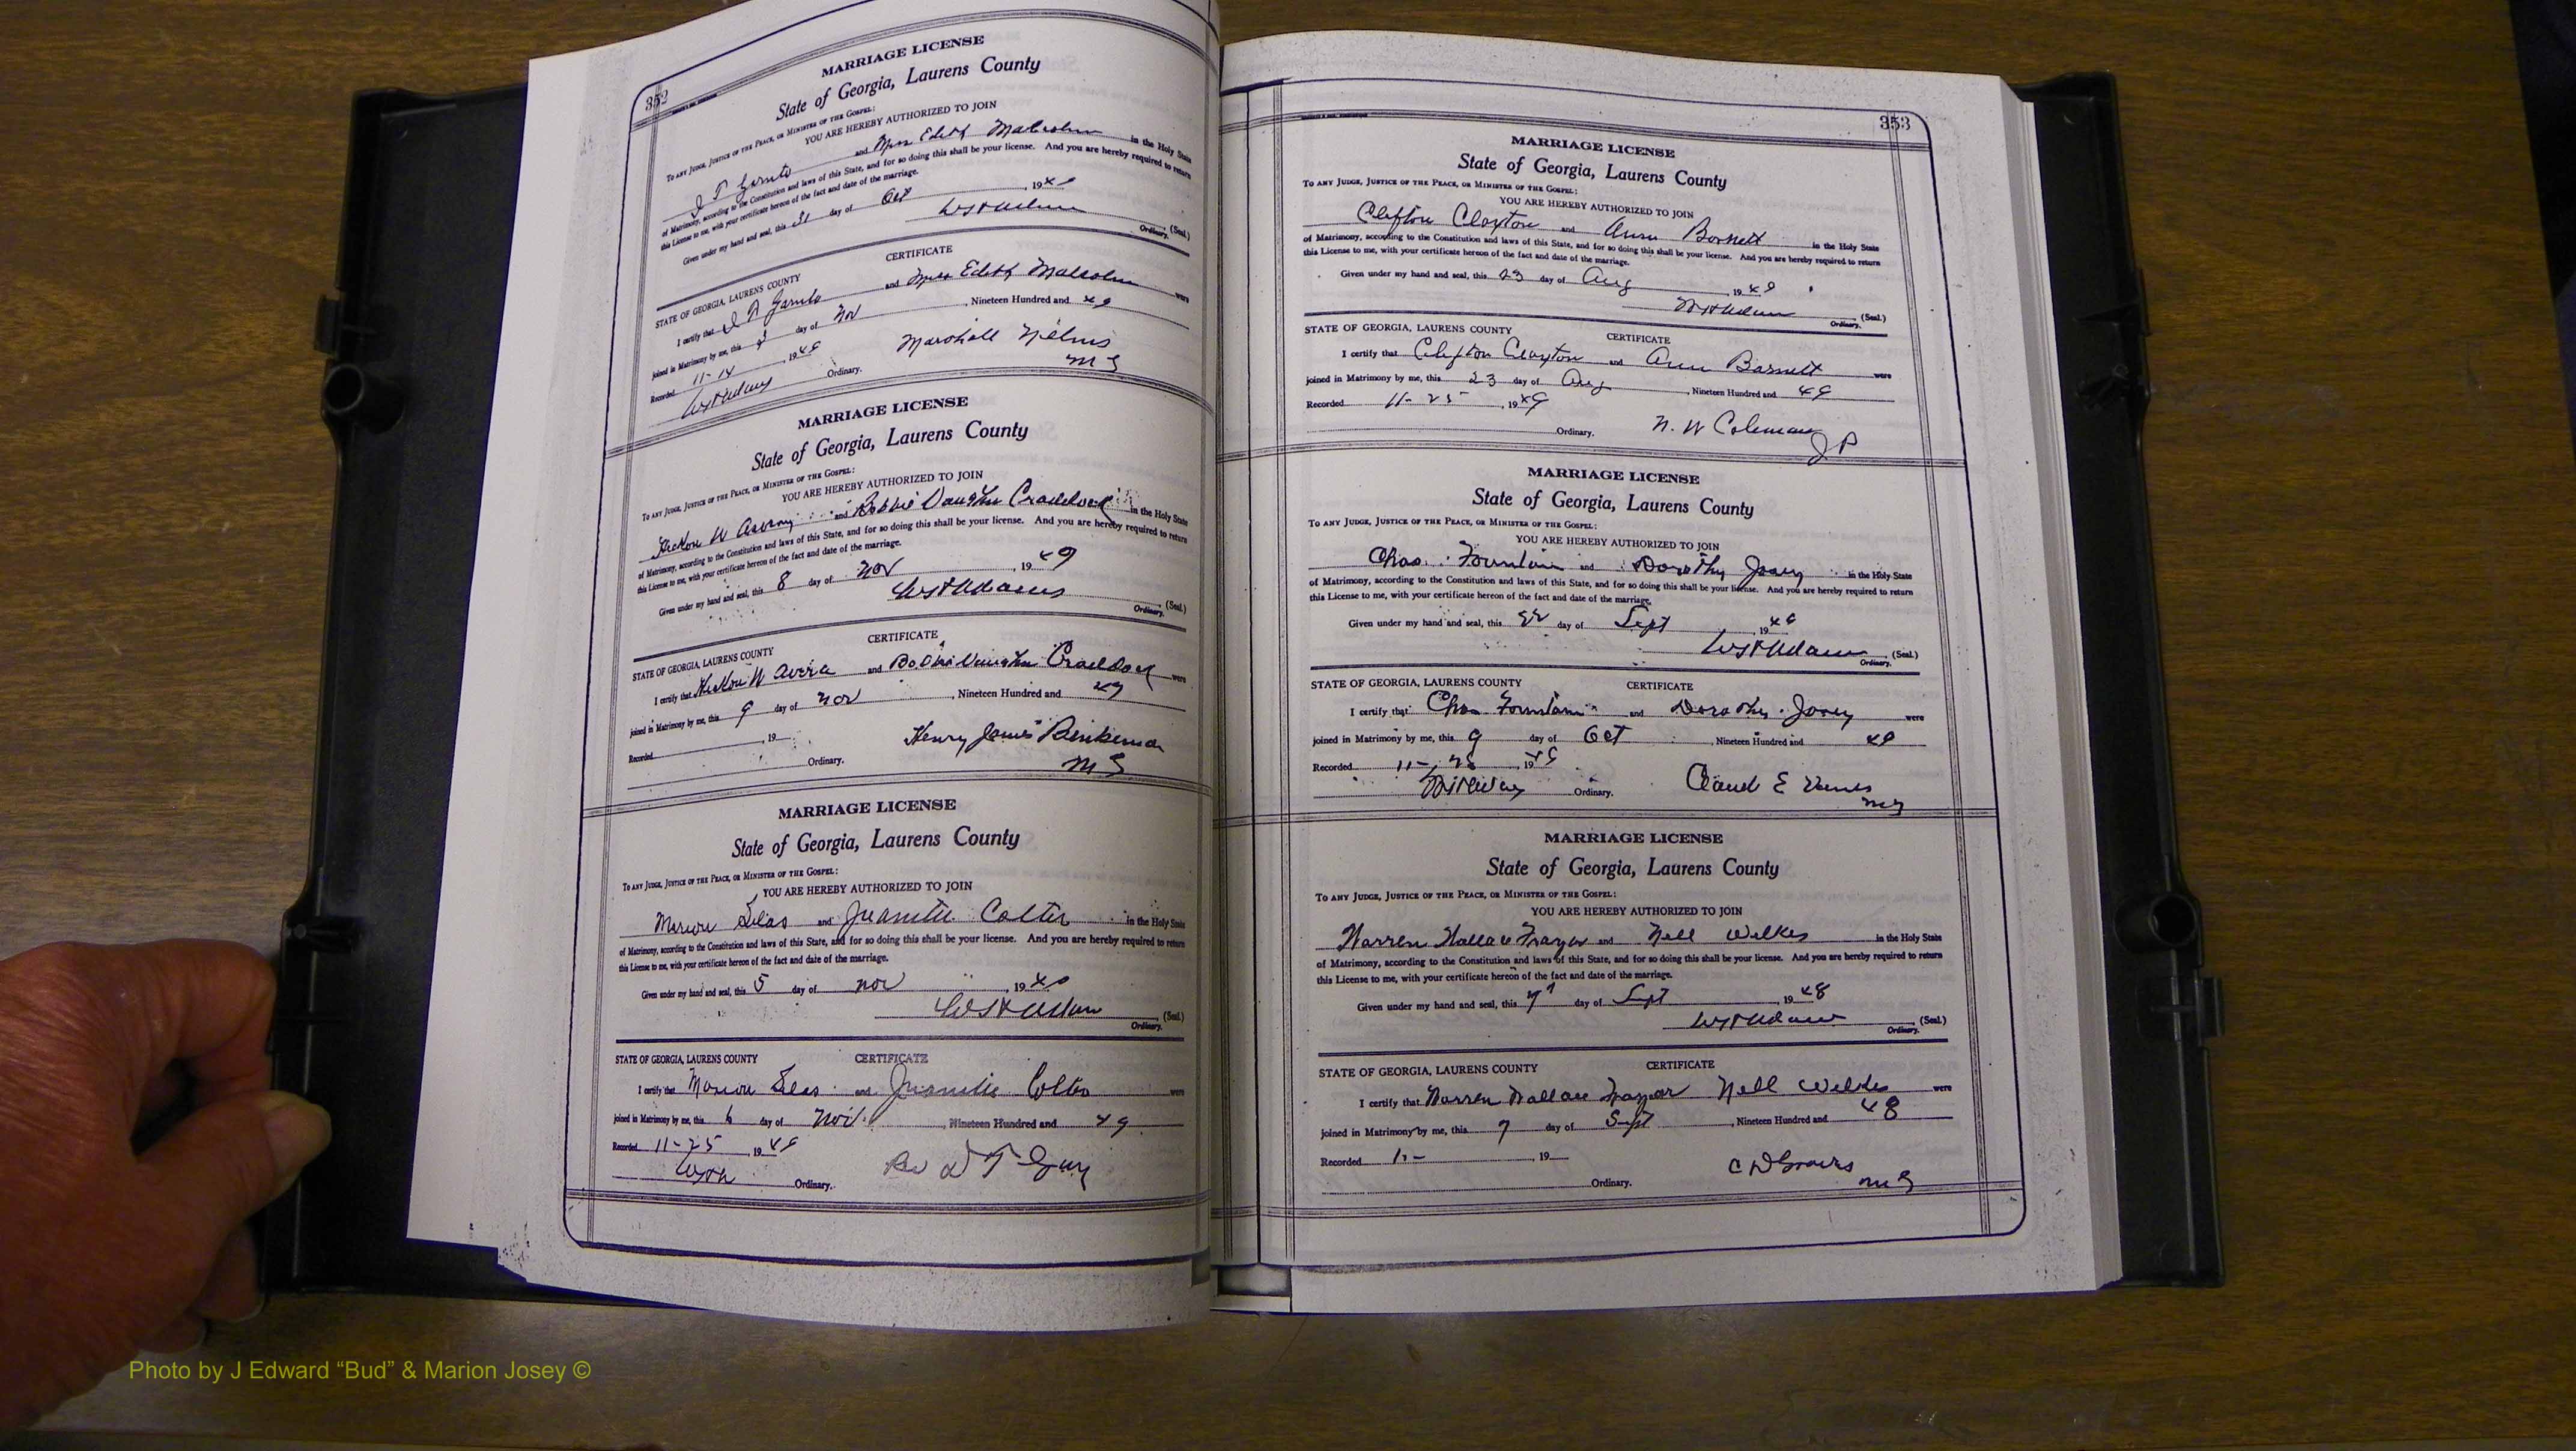 352
MARRIAGE LICENSE
State of Georgia, Laurens County
TO ANY JUDGE, JUSTICE OF THE PEACE, OR MINISTER OF THE GOSPEL:
YOU ARE HEREBY AUTHORIZED TO JOIN
and Miss Edith Malcolm in the Holy State
of Matrimony, according to the Constitution and laws of this State, and for so doing this shall be your license. And you are hereby required to return
this License to me, with your certificate hereof of the fact and date of the marriage.
Given under my hand and seal, this 31 day of Oct, 1949
(Seal.)
Ordinary.
CERTIFICATE
STATE OF GEORGIA, LAURENS COUNTY
I certify that and Miss Edith Malcolm were
joined in Matrimony by me, this day of Nov, Nineteen Hundred and 49
Recorded 11-14, 1949
Ordinary.
Marshall Nelms
M G
MARRIAGE LICENSE
State of Georgia, Laurens County
TO ANY JUDGE, JUSTICE OF THE PEACE, OR MINISTER OF THE GOSPEL:
YOU ARE HEREBY AUTHORIZED TO JOIN
W and Bobbie Vaughn Craddock in the Holy State
of Matrimony, according to the Constitution and laws of this State, and for so doing this shall be your license. And you are hereby required to return
this License to me, with your certificate hereof of the fact and date of the marriage.
Given under my hand and seal, this 8 day of Nov, 1949
Wm H Adams (Seal.)
Ordinary.
CERTIFICATE
STATE OF GEORGIA, LAURENS COUNTY
I certify that W Avera and Bobbie Vaughn Craddock were
joined in Matrimony by me, this 9 day of Nov, Nineteen Hundred and 49
Recorded , 19
Ordinary.
Henry James
M G
MARRIAGE LICENSE
State of Georgia, Laurens County
TO ANY JUDGE, JUSTICE OF THE PEACE, OR MINISTER OF THE GOSPEL:
YOU ARE HEREBY AUTHORIZED TO JOIN
Marion and Juanita in the Holy State
of Matrimony, according to the Constitution and laws of this State, and for so doing this shall be your license. And you are hereby required to return
this License to me, with your certificate hereof of the fact and date of the marriage.
Given under my hand and seal, this 5 day of Nov, 1949
(Seal.)
Ordinary.
STATE OF GEORGIA, LAURENS COUNTY CERTIFICATE
I certify that Marion and were
joined in Matrimony by me, this 6 day of Nov, Nineteen Hundred and 49
Recorded 11-25, 1949
Ordinary.
Rev D T Guy
353
MARRIAGE LICENSE
State of Georgia, Laurens County
TO ANY JUDGE, JUSTICE OF THE PEACE, OR MINISTER OF THE GOSPEL:
YOU ARE HEREBY AUTHORIZED TO JOIN
Clifton Claxton and Ann Barnett in the Holy State
of Matrimony, according to the Constitution and laws of this State, and for so doing this shall be your license. And you are hereby required to return
this License to me, with your certificate hereof of the fact and date of the marriage.
Given under my hand and seal, this 23 day of Aug, 1949
(Seal.)
Ordinary.
STATE OF GEORGIA, LAURENS COUNTY CERTIFICATE
I certify that Clifton Claxton and Ann Barnett were
joined in Matrimony by me, this 23 day of Aug, Nineteen Hundred and 49
Recorded 11-25, 1949
Ordinary.
N. W Coleman
J P
MARRIAGE LICENSE
State of Georgia, Laurens County
TO ANY JUDGE, JUSTICE OF THE PEACE, OR MINISTER OF THE GOSPEL:
YOU ARE HEREBY AUTHORIZED TO JOIN
Chas. Fountain and Dorothy Josey in the Holy State
of Matrimony, according to the Constitution and laws of this State, and for so doing this shall be your license. And you are hereby required to return
this License to me, with your certificate hereof of the fact and date of the marriage.
Given under my hand and seal, this day of Sept, 1949
(Seal.)
Ordinary.
STATE OF GEORGIA, LAURENS COUNTY CERTIFICATE
I certify that Chas Fountain and Dorothy Josey were
joined in Matrimony by me, this 9 day of Oct, Nineteen Hundred and 49
Recorded 11- , 1949
Ordinary.
Claud E
M G
MARRIAGE LICENSE
State of Georgia, Laurens County
TO ANY JUDGE, JUSTICE OF THE PEACE, OR MINISTER OF THE GOSPEL:
YOU ARE HEREBY AUTHORIZED TO JOIN
Warren Wallace and Nell Wilkes in the Holy State
of Matrimony, according to the Constitution and laws of this State, and for so doing this shall be your license. And you are hereby required to return
this License to me, with your certificate hereof of the fact and date of the marriage.
Given under my hand and seal, this 7 day of Sept, 1948
Wm H Adams (Seal.)
Ordinary.
STATE OF GEORGIA, LAURENS COUNTY CERTIFICATE
I certify that Warren Wallace Nell Wilkes were
joined in Matrimony by me, this 7 day of Sept, Nineteen Hundred and 48
Recorded 11- , 19
Ordinary.
C D Graves
M G
Photo by J Edward “Bud” & Marion Josey ©